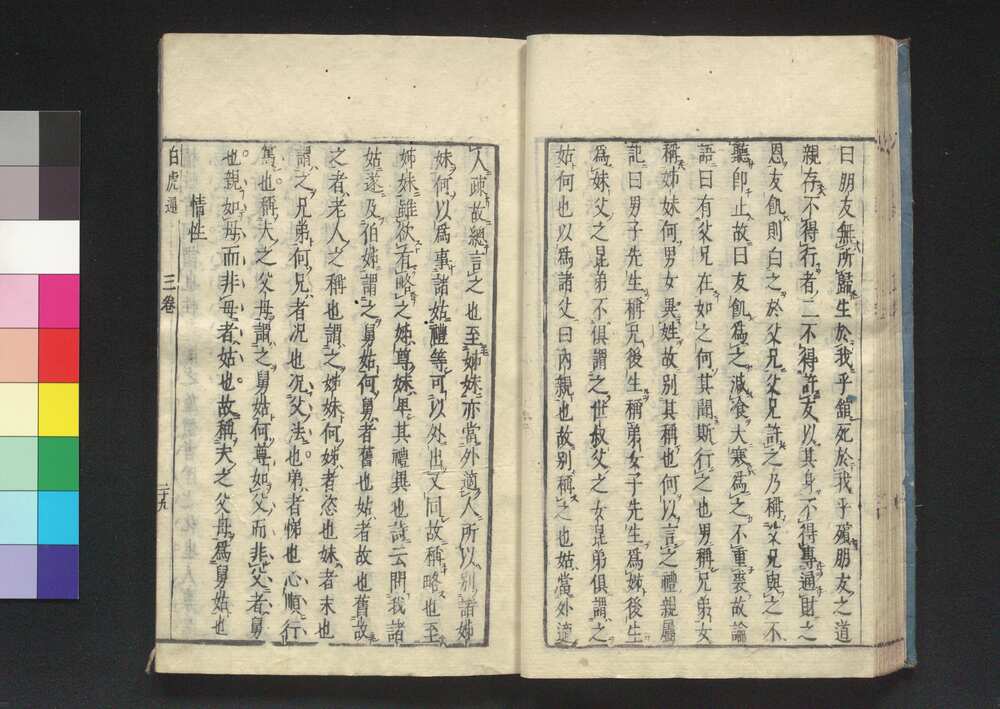 曰朋友無所歸生於我乎館死於我乎殯朋友之道
親存不得行者二不得許友以其身不得專通財之
恩友飢則白之於父兄父兄許之乃稱父兄與之不
聽即止故曰友飢爲之減食大寒爲之不重裘故論
語曰有父兄在如之何其聞斯行之也男稱兄弟女
稱姊妹何男女異姓故别其稱也何以言之禮親屬
記曰男子先生稱兄後生稱弟女子先生爲姊後生
爲妹父之昆弟不俱謂之世叔父之女昆弟俱謂之
姑何也以爲諸父曰内親也故别稱之也姑當外適
人疎故總言之也至姊妹亦當外適人所以别諸姊
妹何以爲事諸姑禮等可以外出又同故稱略也至
姊妹雖欲有略之姊尊妹卑其禮異也詩云問我諸
姑遂及伯姊謂之舅姑何舅者舊也姑者故也舊故
之者老人之稱也謂之姊妹何姊者恣也妹者末也
謂之兄弟何兄者况也况父法也弟者悌也心順行
篤也稱夫之父母謂之舅姑何尊如父而非父者舅
也親如母而非母者姑也故稱夫之父母爲舅姑也
情性
白虎通 三卷 二十九